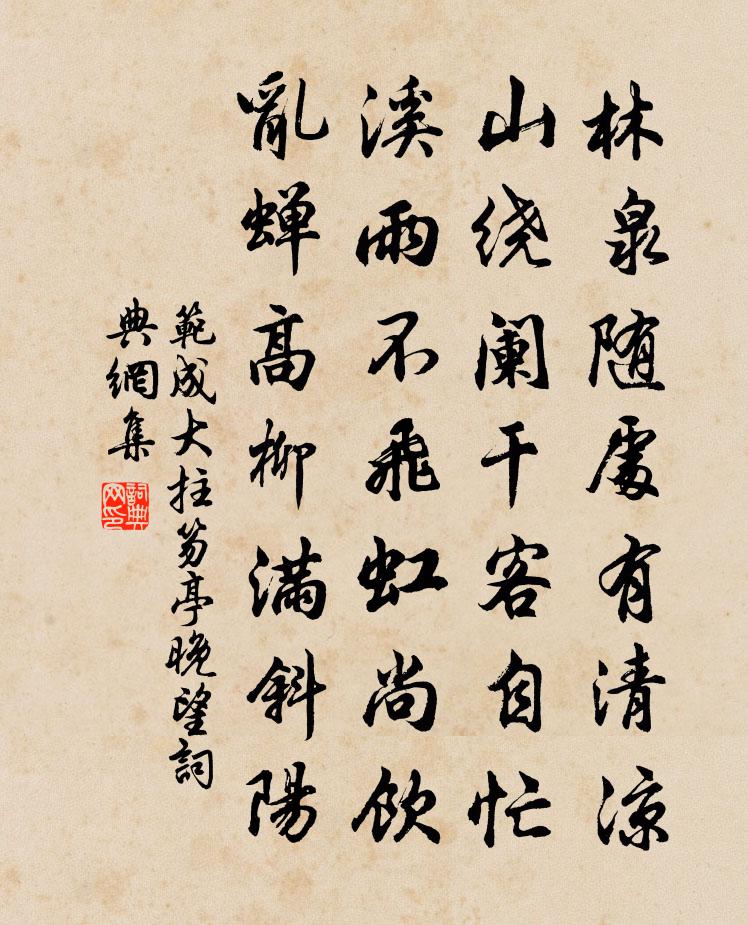 林泉随處有清凉
山绕阑干客自忙
溪雨不飛虹尚飲
亂蝉高柳满斜陽
範成大拄笏亭晚望詞
典網集
詞典
网印